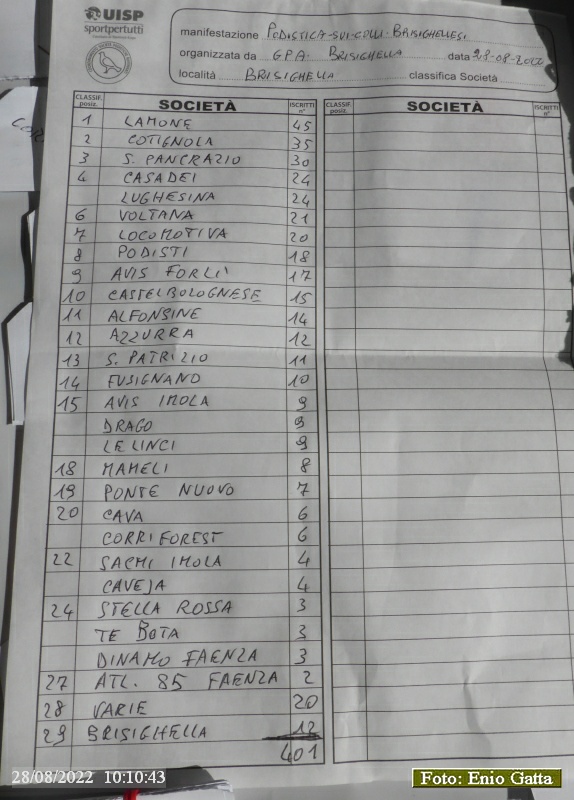 UISP
sportpertutti
manifestazione PODISTICA-SUI-COLLI-BRISIGHELLESI
organizzata da GPA. BRISIGHELLA data 28-08-2022
località BRISIGHELLA classifica Società
CLASSIF. posiz. SOCIETÀ ISCRITTI n° CLASSIF. posiz. SOCIETÀ ISCRITTI n°
1 LAMONE 45
2 COTIGNOLA 35
3 S. PANCRAZIO 30
4 CASADEI 24
LUGHESINA 24
6 VOLTANA 21
7 LOCOMOTIVA 20
8 PODISTI 18
9 AVIS FORLI' 17
10 CASTELBOLOGNESE 15
11 ALFONSINE 14
12 AZZURRA 12
13 S. PATRIZIO 11
14 FUSIGNANO 10
15 AVIS IMOLA 9
DRAGO 9
LE LINCI 9
18 MAMELI 8
19 PONTE NUOVO 7
20 CAVA 6
CORRIFOREST 6
22 SACMI IMOLA 4
CAVEJA 4
24 STELLA ROSSA 3
TE BOTA 3
DINAMO FAENZA 3
27 ATL. 85 FAENZA 2
28 VARIE 20
29 BRISIGHELLA 12
401
28/08/2022 10:10:43
Foto: Enio Gatta